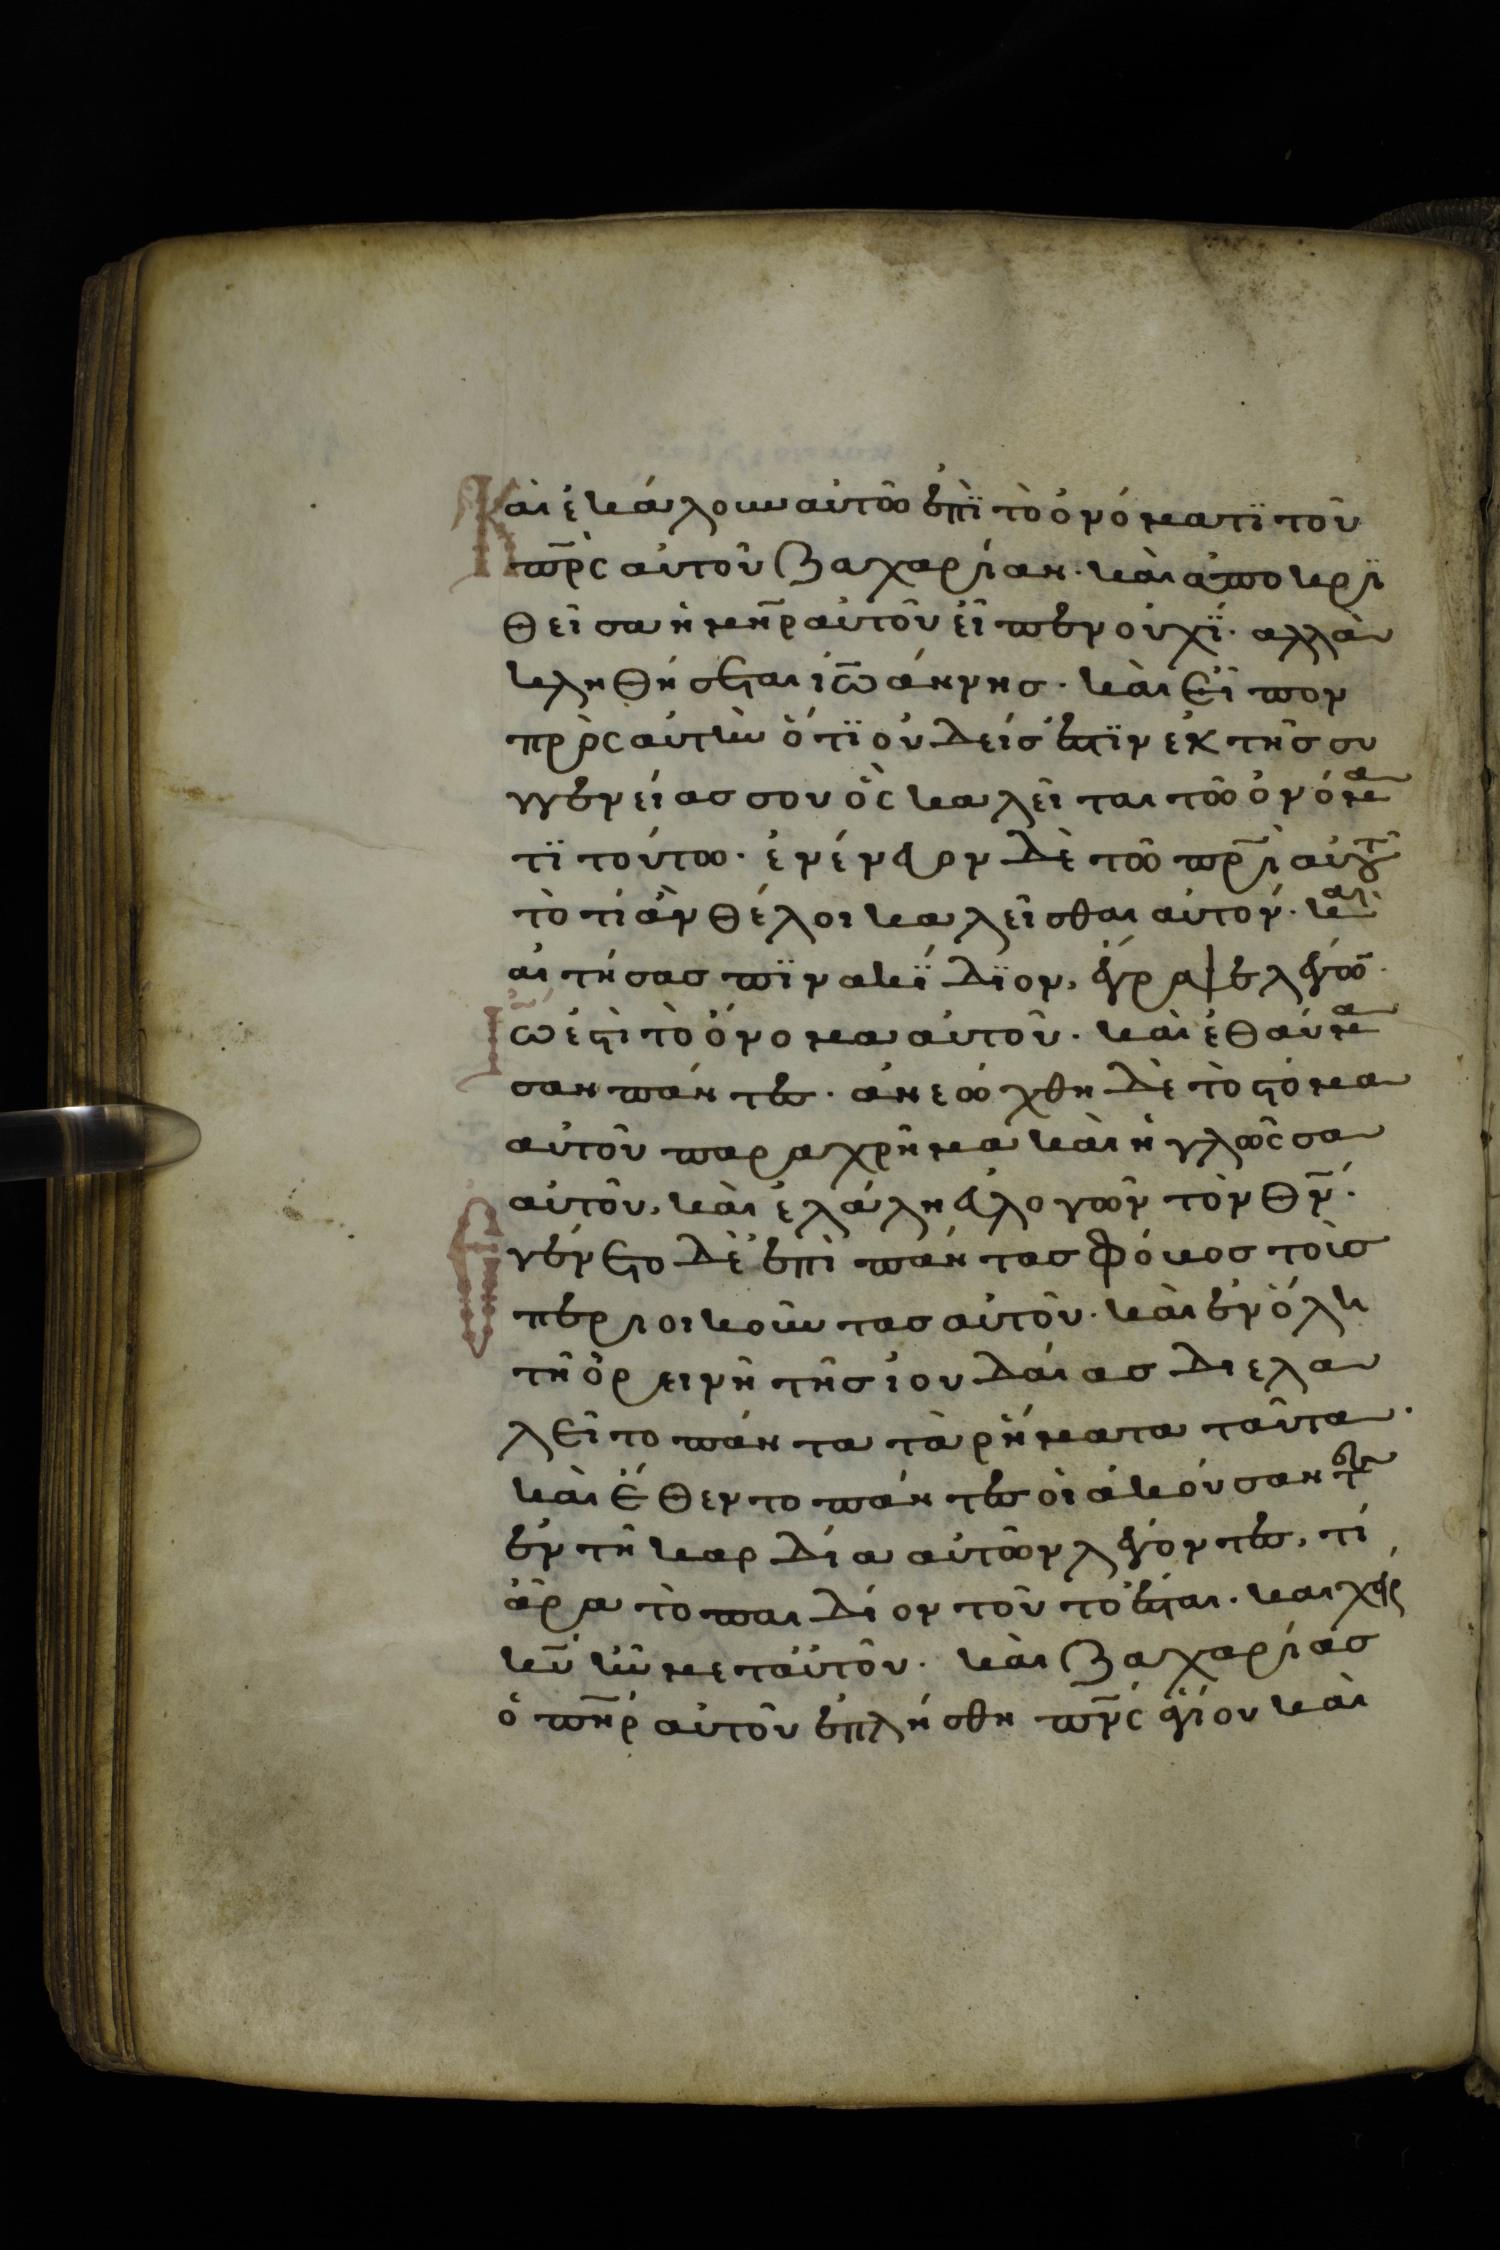 Καὶ ἐκάλουν αὐτῶ ἐπῒ τὸ ὀνόματϊ τοῦ
πρ̅ς αὐτοῦ Ζαχαρίαν· καὶ ἀποκρϊ
θεῖσα ἡ μη̅ρ αὐτοῦ εἶπεν οὐχΐ· αλλὰ
κληθήσεται ἰω̅άννης· καὶ εἶπον
πρὸς αὐτὴν ὅτϊ οὐδείς ἐστϊν ἐκ τῆς συ
γγενείας σου ὃς καλεῖται τῶ ὀνόμα
τϊ τούτω· ἐνένευον δὲ τῶ πρ̅ὶ αὐτοῦ
τὸ τί ἂν θέλοι καλεῖσθαι αὐτόν· καὶ
αἰτήσας πϊνακΐδϊον, ἔγραψε λέγων·
Ἰω̅ ἐστὶ τὸ ὄνομα αὐτοῦ· καὶ ἐθαύμα
σαν πάντες· ἀνεώχθη δὲ τὸ στόμα
αὐτοῦ παραχρῆμα καὶ ἡ γλῶσσα
αὐτοῦ, καὶ ἐλάλη εὐλογῶν τὸν θν̅·
Ἐγένετο δὲ ἐπὶ πάντας φόκος τοὶς
περιοικοῦντας αὐτοῦ· καὶ ἐν ὅλη
τῆ ὀρεινῆ τῆς ἰουδάιας διελα
λεῖτο πάντα τὰ ῥήματα ταῦτα·
καὶ ἔθεντο πάντες οἱ ἀκούσαντες
ἐν τῆ καρδία αὐτῶν λέγοντες, τί
ἆρα τὸ παιδίον τοῦτο ἔσται· και χεὶρ
κυ̅ ἦν μετ αὐτοῦ· καὶ Ζαχαρίας
ὁ πη̅ρ αὐτοῦ ἐπλήσθη πν̅ς ἁγίου καὶ